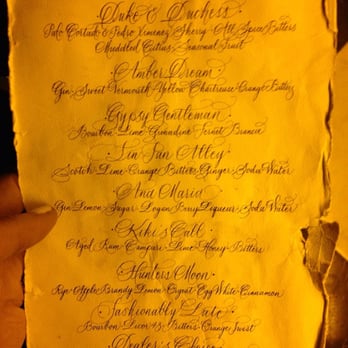 Duke & Duchess
Palo Cortado & Pedro Ximenez Sherry · All Spice Bitters
Muddled Citrus · Seasonal Fruit
· Amber Dream ·
Gin · Sweet Vermouth · Yellow Chartreuse · Orange Bitters
Gypsy Gentleman
Bourbon · Lime · Grenadine · Fernet Branca
· Tin Pan Alley
Scotch · Lime · Orange Bitters · Ginger · Soda Water
Ana Maria
Gin · Lemon · Sugar · Logan Berry Liqueur · Soda Water
Kiki's Call
Aged Rum · Campari · Lime · Honey · Bitters
Hunters Moon
Rye · Apple Brandy · Lemon · Cynar · Egg White · Cinnamon
Fashionably Late
Bourbon · Licor 43 · Bitters · Orange Twist